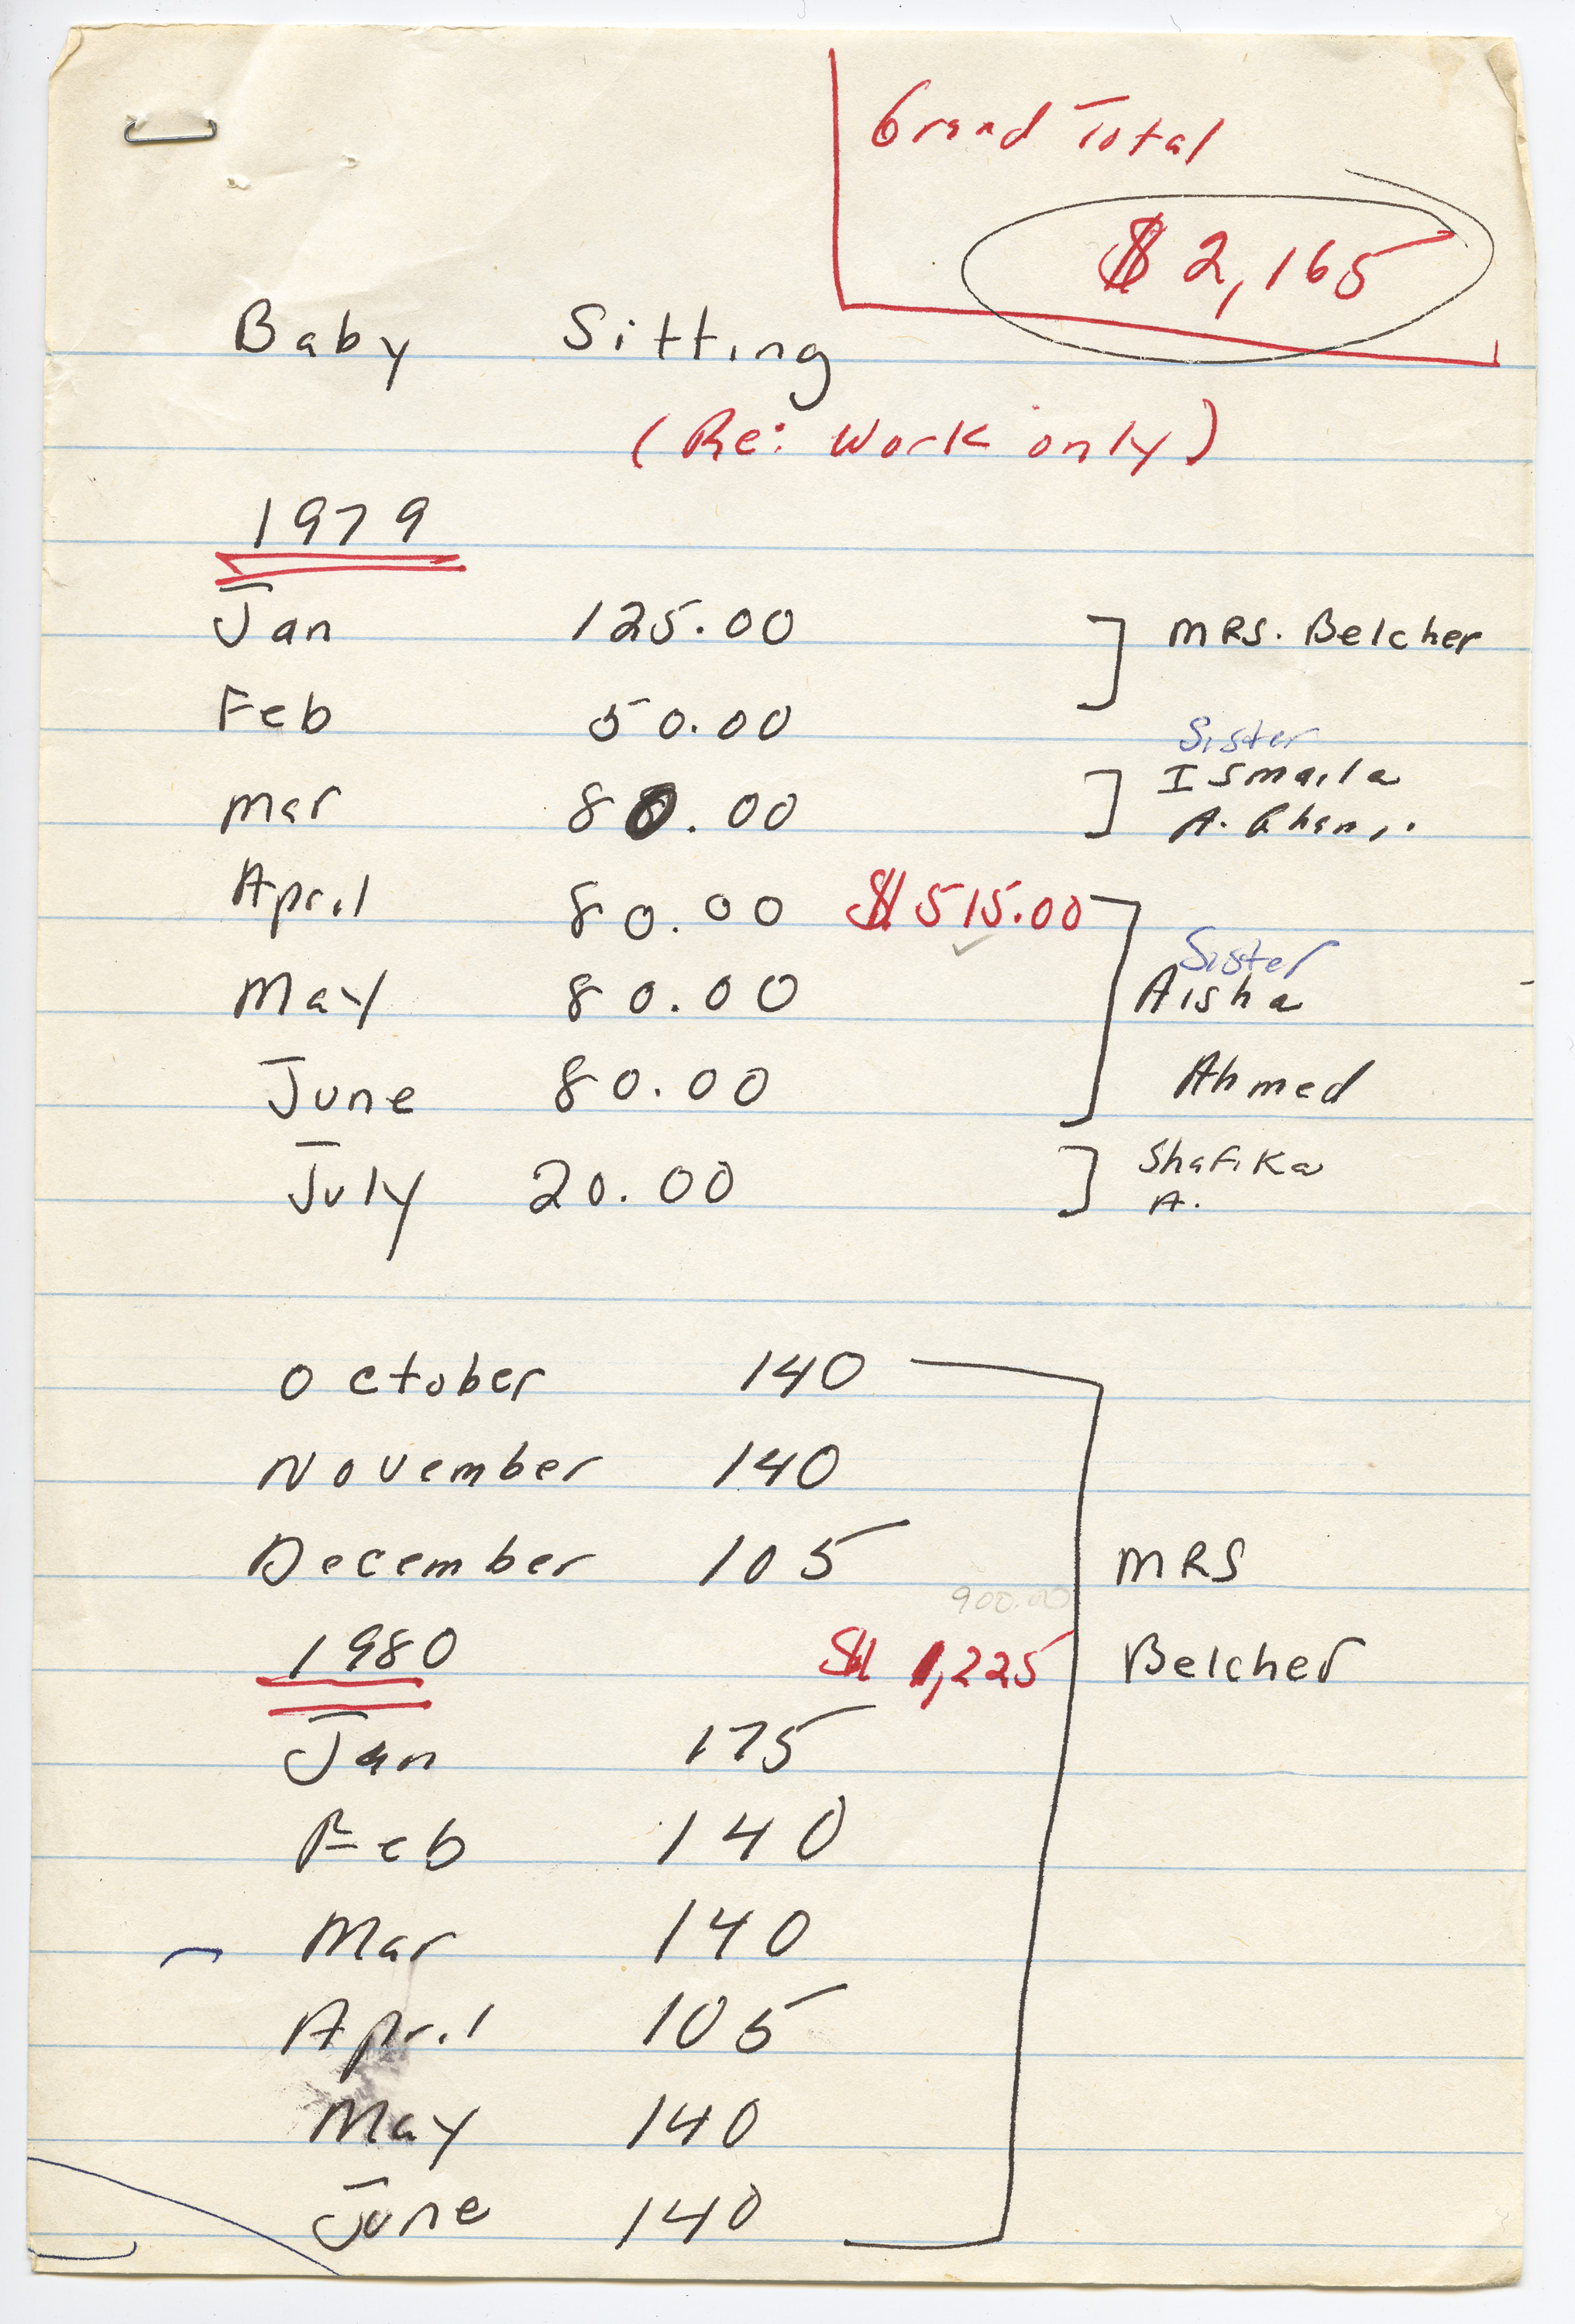 Grand Total
$ 2,165
Baby Sitting
(Re: Work only)
1979
Jan 125.00 MRS. Belcher
Feb 50.00
Sister
Mar 80.00 Ismaila
A. Ghani.
April 80.00 $ 515.00
Sister
May 80.00 Aisha
June 80.00 Ahmed
July 20.00 Shafika
A.
October 140
November 140
December 105 MRS
900.00
1980 $ 1,225 Belcher
Jan 175
Feb 140
Mar 140
April 105
May 140
June 140